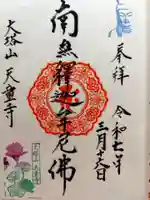 奉拝
令和七年
三月十六日
南無釋迦牟尼佛
大塔山
天龍寺